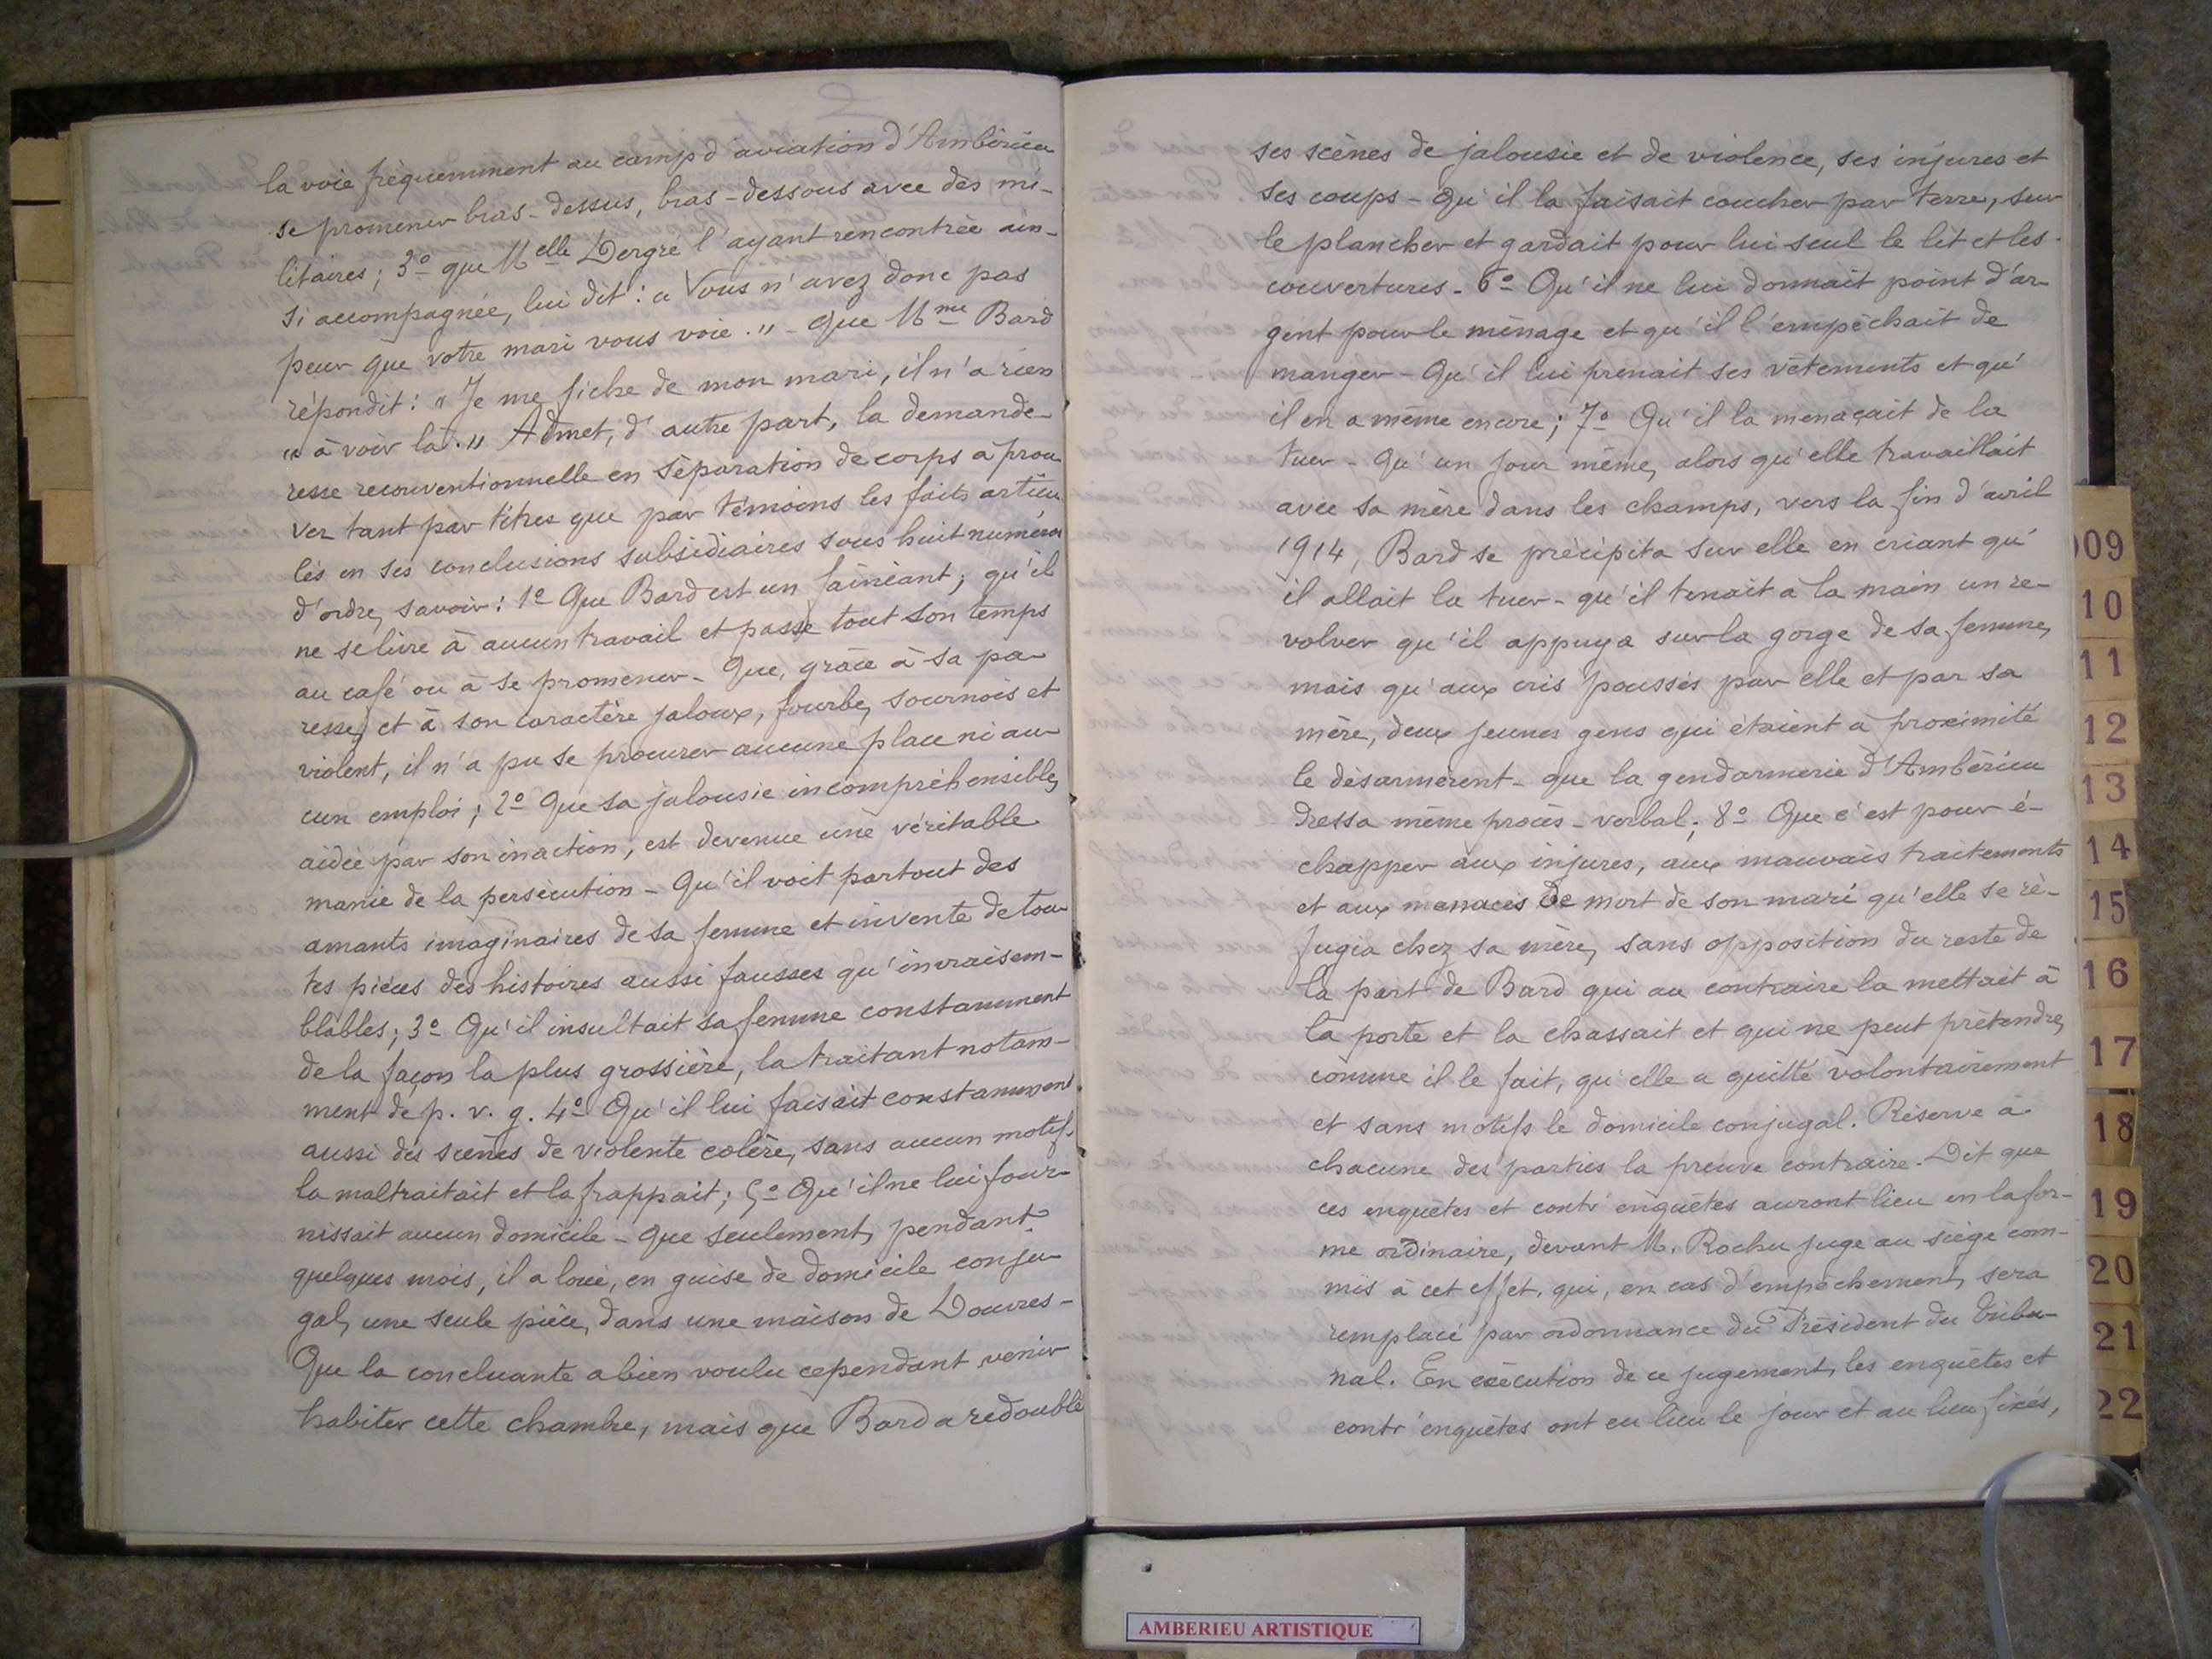 la voie fréquemment au camp d'aviation d'Ambérieu
se promener bras-dessus, bras-dessous avec des mi-
litaires; 3º que Melle Dergré l'ayant rencontrée ain-
si accompagnée, lui dit: « Vous n'avez donc pas
peur que votre mari vous voie.» - que Mme Bard
répondit: « Je me fiche de mon mari, il n'a rien
« à voir là.» Admet, d'autre part, la demande-
resse reconventionnelle en séparation de corps à prou-
ver tant par titres que par témoins les faits articu-
lés en ses conclusions subsidiaires sous huit numéros
d'ordre, savoir: 1º Que Bard est un fainéant; qu'il
ne se livre à aucun travail et passe tout son temps
au café ou à se promener - Que, grâce à sa pa-
resse, et à son caractère jaloux, fourbe, sournois et
violent, il n'a pu se procurer aucune place ni au-
cun emploi; 2º Que sa jalousie incompréhensible,
aidée par son inaction, est devenue une véritable
manie de la persécution - Qu'il voit partout des
amants imaginaires de sa femme et invente de tou-
tes pièces des histoires aussi fausses qu'invraisem-
blables; 3º Qu'il insultait sa femme constamment
de la façon la plus grossière, la traitant notam-
ment de p. v. g. 4º Qu'il lui faisait constamment
aussi des scènes de violente colère, sans aucun motif,
la maltraitait et la frappait; 5º Qu'il ne lui four-
nissait aucun domicile - Que seulement, pendant
quelques mois, il a loué, en guise de domicile conju-
gal, une seule pièce, dans une maison de Douvres -
Que la concluante a bien voulu cependant venir
habiter cette chambre, mais que Bard a redoublé
ses scènes de jalousie et de violence, ses injures et
ses coups - Qu'il la faisait coucher par terre, sur
le plancher et gardait pour lui seul le lit et les
couvertures - 6º Qu'il ne lui donnait point d'ar-
gent pour le ménage et qu'il l'empêchait de
manger - Qu'il lui prenait ses vêtements et qu'
il en a même encore; 7º Qu'il la menaçait de la
tuer - Qu'un jour même, alors qu'elle travaillait
avec sa mère dans les champs, vers la fin d'avril
1914, Bard se précipita sur elle en criant qu'
il allait la tuer - qu'il tenait à la main un re-
volver qu'il appuya sur la gorge de sa femme,
mais qu'aux cris poussés par elle et par sa
mère, deux jeunes gens qui étaient à proximité
le désarmèrent - que la gendarmerie d'Ambérieu
dressa même procès-verbal; 8º Que c'est pour é-
chapper aux injures, aux mauvais traitements
et aux menaces de mort de son mari qu'elle se ré-
fugia chez sa mère, sans opposition du reste de
la part de Bard qui au contraire la mettait à
la porte et la chassait et qui ne peut prétendre,
comme il le fait, qu'elle a quitté volontairement
et sans motifs le domicile conjugal. Réserve à
chacune des parties la preuve contraire. Dit que
ces enquêtes et contr'enquêtes auront lieu en la for-
me ordinaire, devant M. Rochu juge au siège com-
mis à cet effet, qui, en cas d'empêchement, sera
remplacé par ordonnance du Président du Tribu-
nal. En exécution de ce jugement, les enquêtes et
contr'enquêtes ont eu lieu le jour et au lieu fixés,
09
10
11
12
13
14
15
16
17
18
19
20
21
22
AMBERIEU ARTISTIQUE